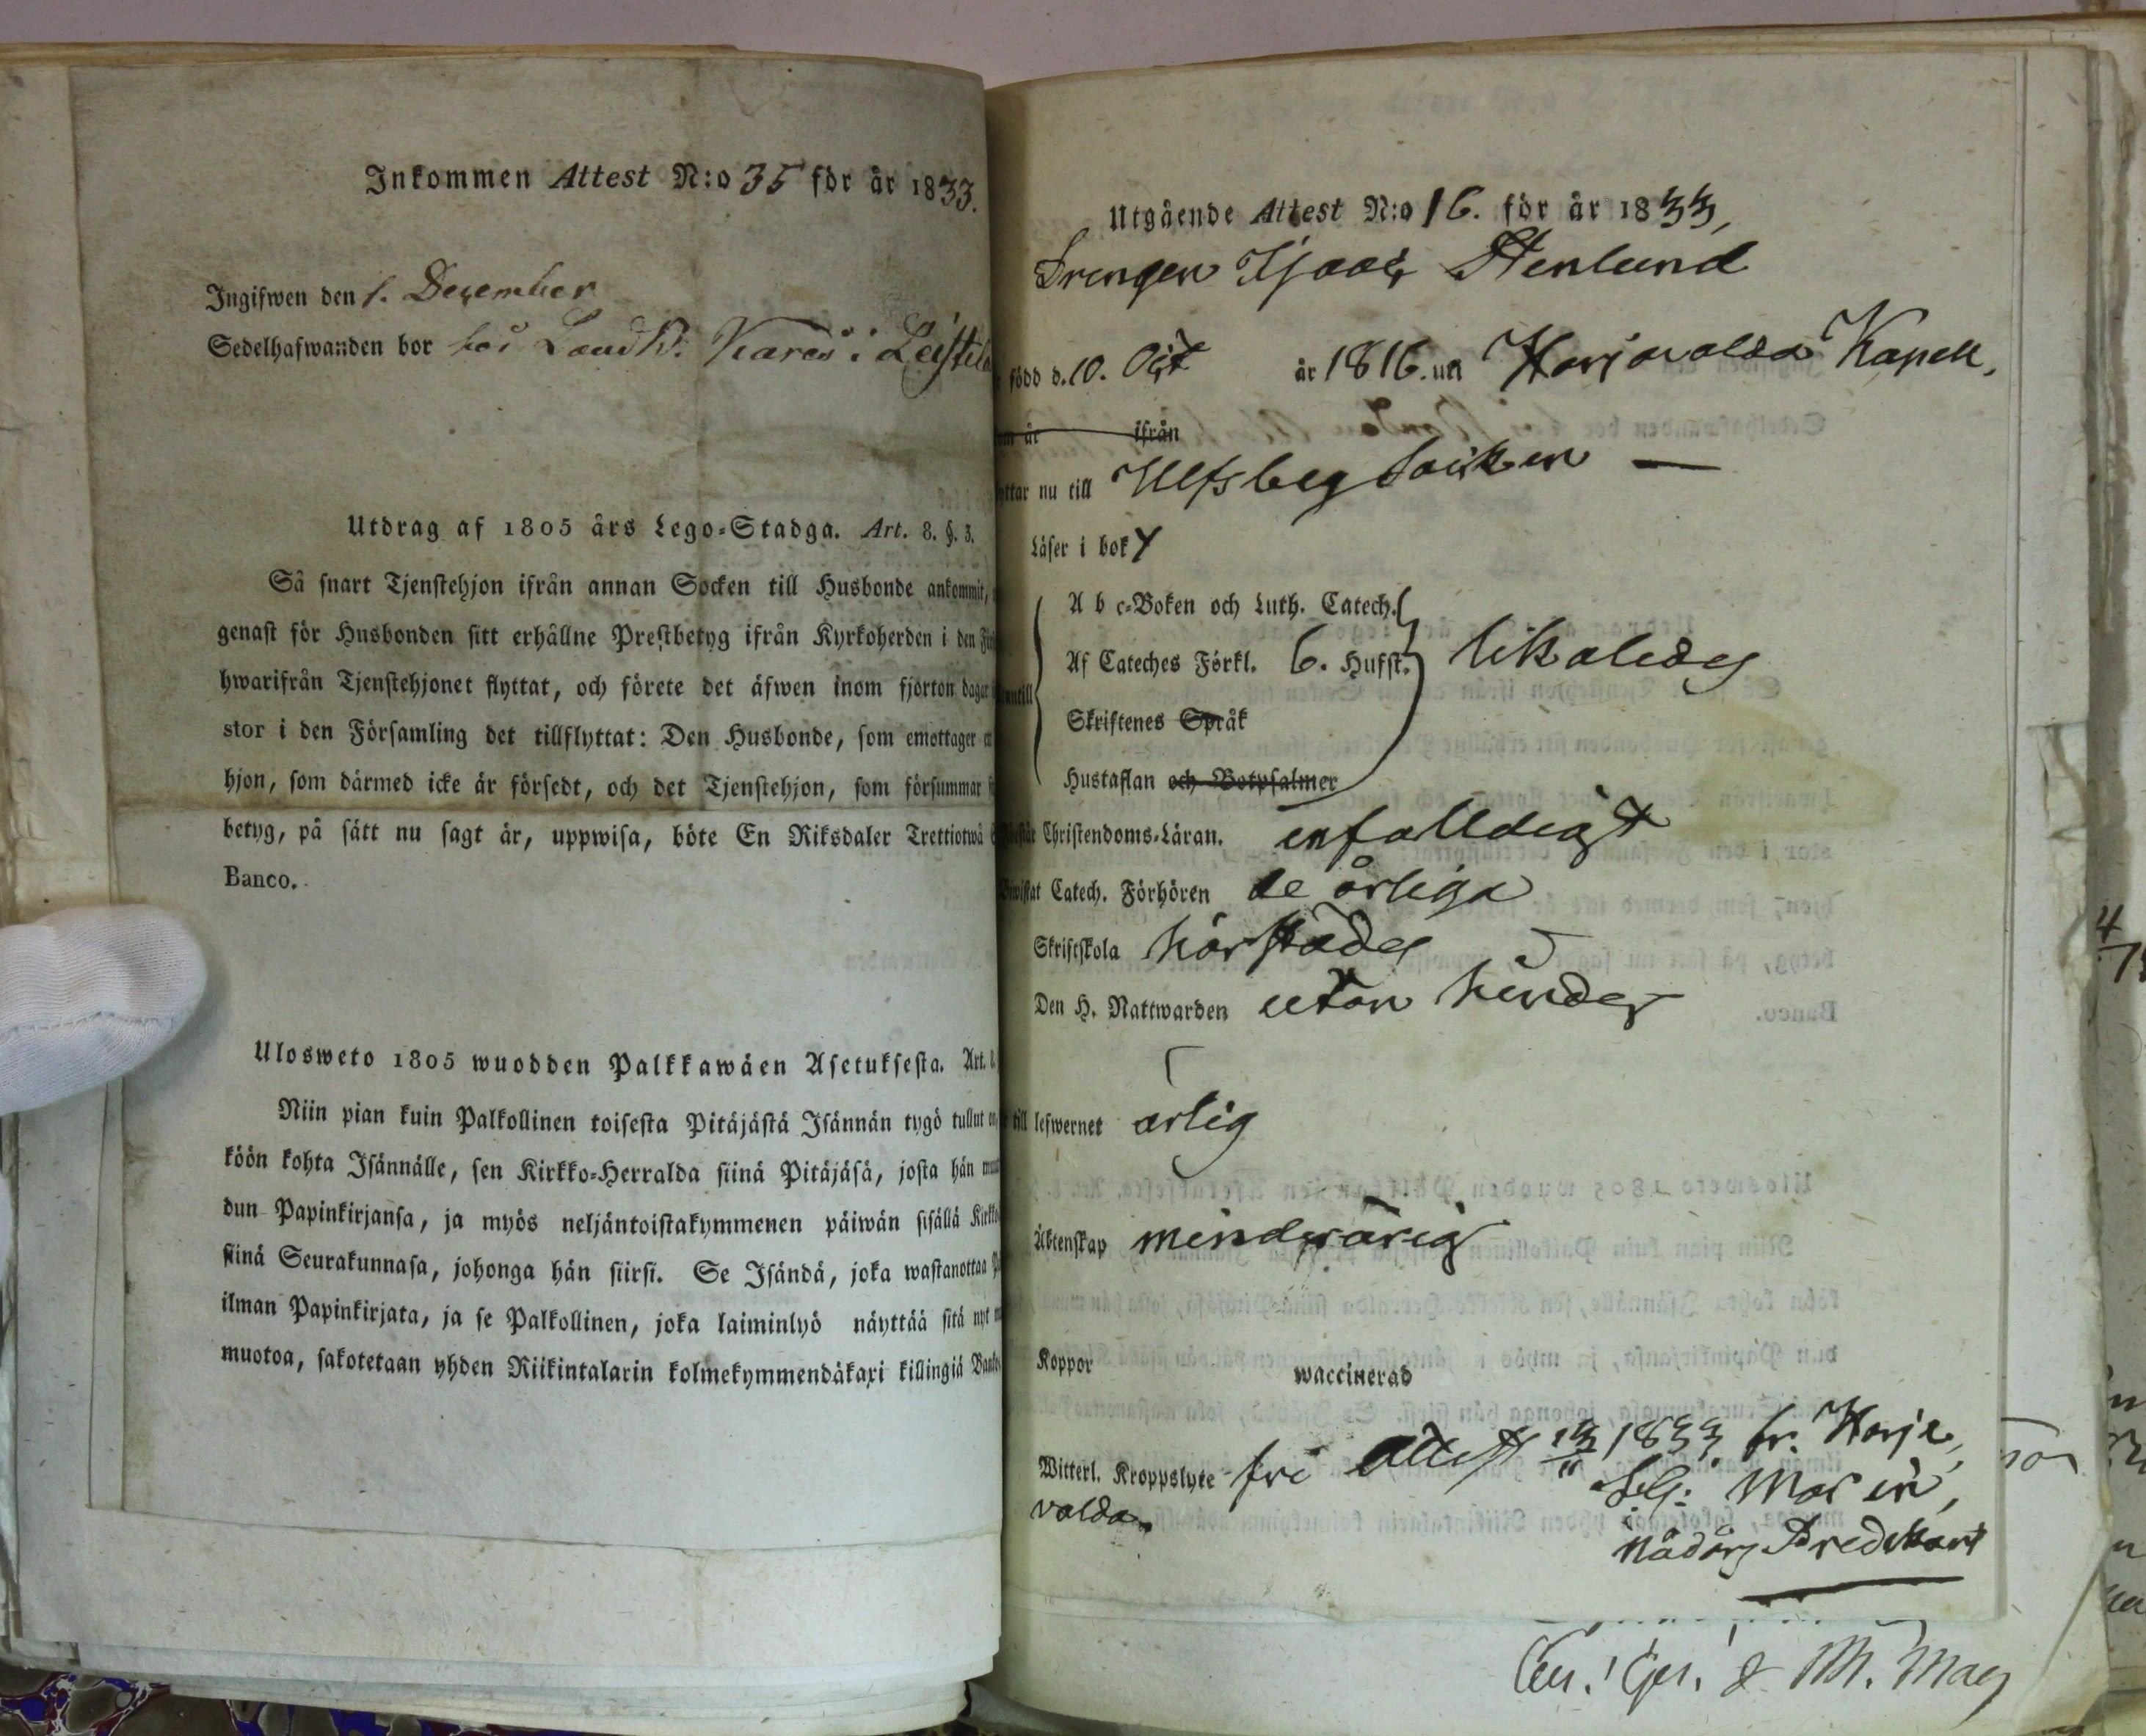 Inkommen Attest N:o 35 för år 1833.
Ingifwen den 1. December
Sedelhafwanden bor hos i
Utdrag af 1805 års Lego-Stadga. Art. 8. §. 3.
Så snart Tjenstehjon ifrån annan Socken till Husbonde ankommit,
genast för Husbonden sitt erhållne Prestbetyg ifrån Kyrkoherden i den
hwarifrån Tjenstehjonet flyttat, och förete det äfwen inom fjorton dagar
stor i den Församling det tillflyttat: Den Husbonde, som emottager
hjon, som därmed icke är försedt, och det Tjenstehjon, som försummar
betyg, på sätt nu sagt är, uppwisa, böte En Riksdaler Trettiotwå
Banco.
Ulosweto 1805 wuodden Palkkawäen Asetuksesta. Art.
Niin pian kuin Palkollinen toisesta Pitäjästä Isännän tygö tullut
köön kohta Isännälle, sen Kirkko-Herralda siinä Pitäjäsä, josta hän
dun Papinkirjansa, ja myös neljäntoistakymmenen päiwän sisällä
siinä Seurakunnasa, johonga hän siirsi. Se Isändä, joka wastanottaa
ilman Papinkirjata, ja se Palkollinen, joka laiminlyö näyttää sitä nyt
muotoa, sakotetaan yhden Riikintalarin kolmekymmendäkaxi killingiä
Utgående Attest N:o 16. för år 1833,
Drengen Isaac Stenlund
född d. 10. Oct år 1816. uti Harjavalda Kapell.
år ifrån
nu till Ulfsby Socken —
Läser i bok
A b c-Boken och Luth. Catech.
Af Cateches Förkl. 6. Hufst. likaledes
Skriftenes Språk
Hustaflan och Botpsalmer
Christendoms-Läran. enfalldigt
Catech. Förhören de årliga
Skriftskola härstädes
Den H. Nattwarden utan hinder
till lefwernet ärlig
Äktenskap minderårig
Koppor waccinerad
Witterl. Kroppslyte fri attest 13/11 1833 fr. Harja
valda.
Nådårs Predikant